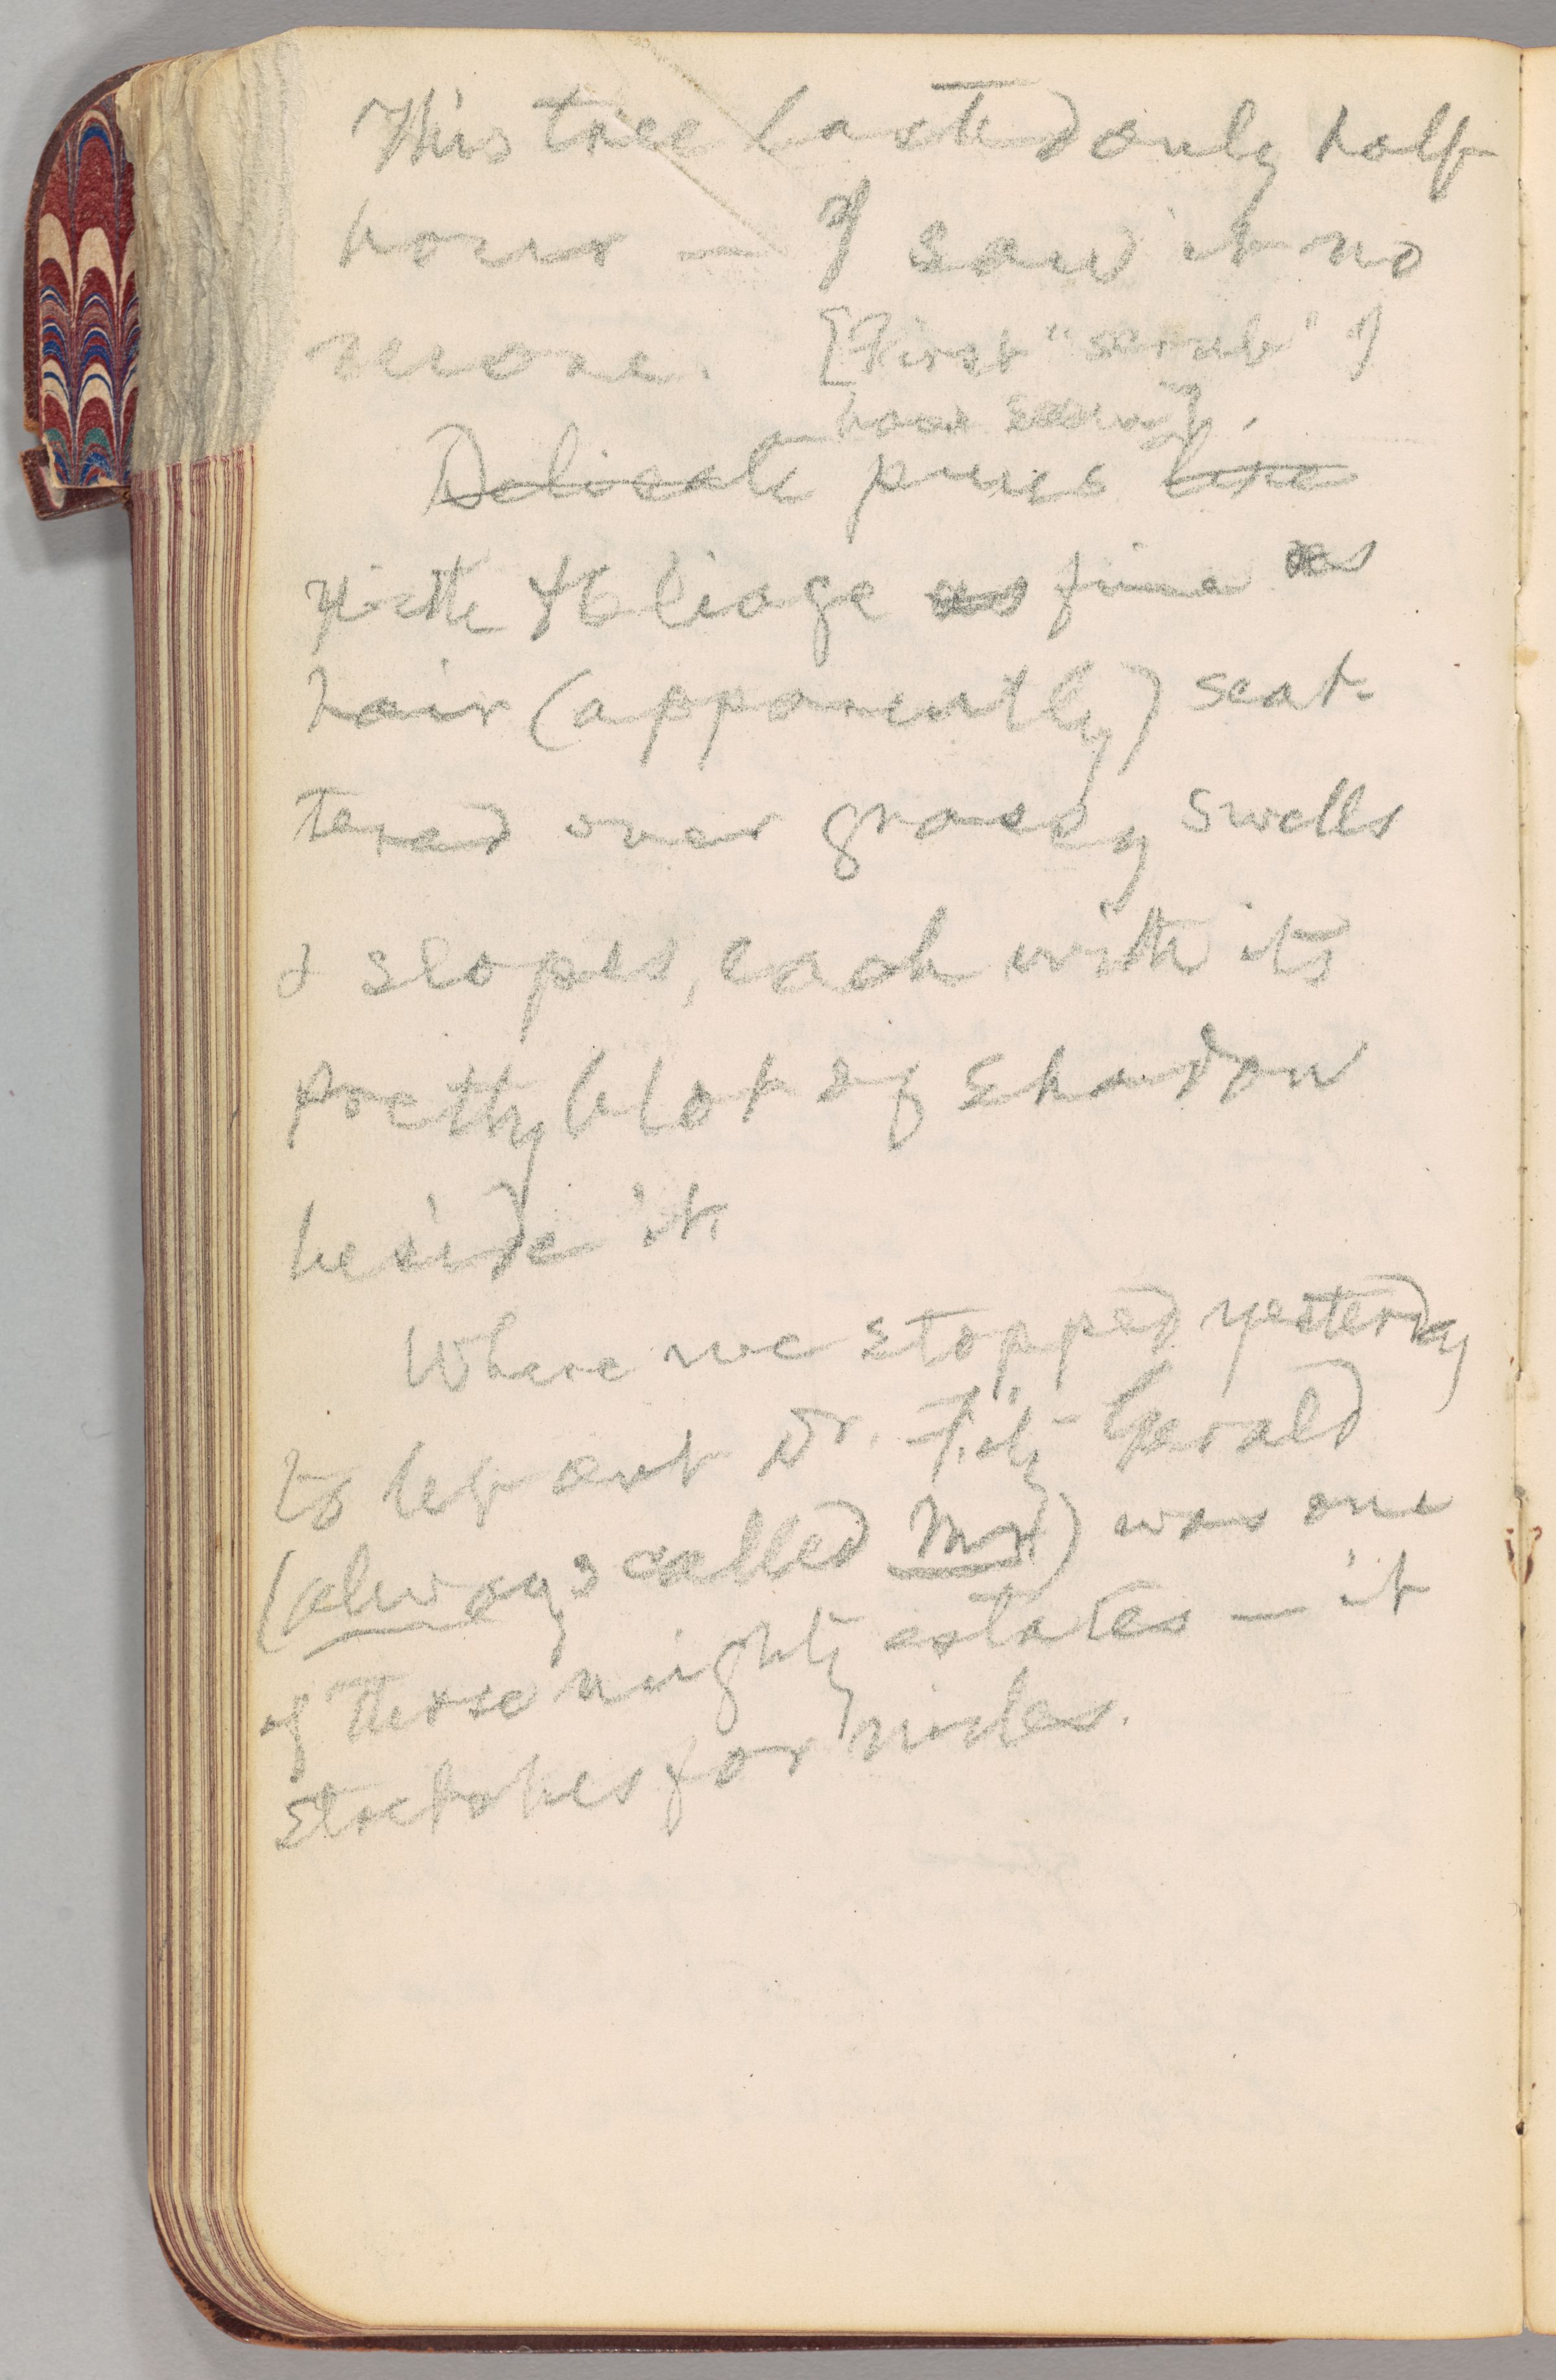 This tree lasted only half
hour — I saw it no
more. [First "scrub" I
have seen],
Delicate pines
with foliage as fine as
hair (apparently) scat-
tered over grassy swells
& slopes, each with its
pretty blot of shadow
beside it.
Where we stopped yesterday
to let out Dr. Fitz-Gerald
(always called Mr.) was one
of those mighty estates — it
stretches for miles.